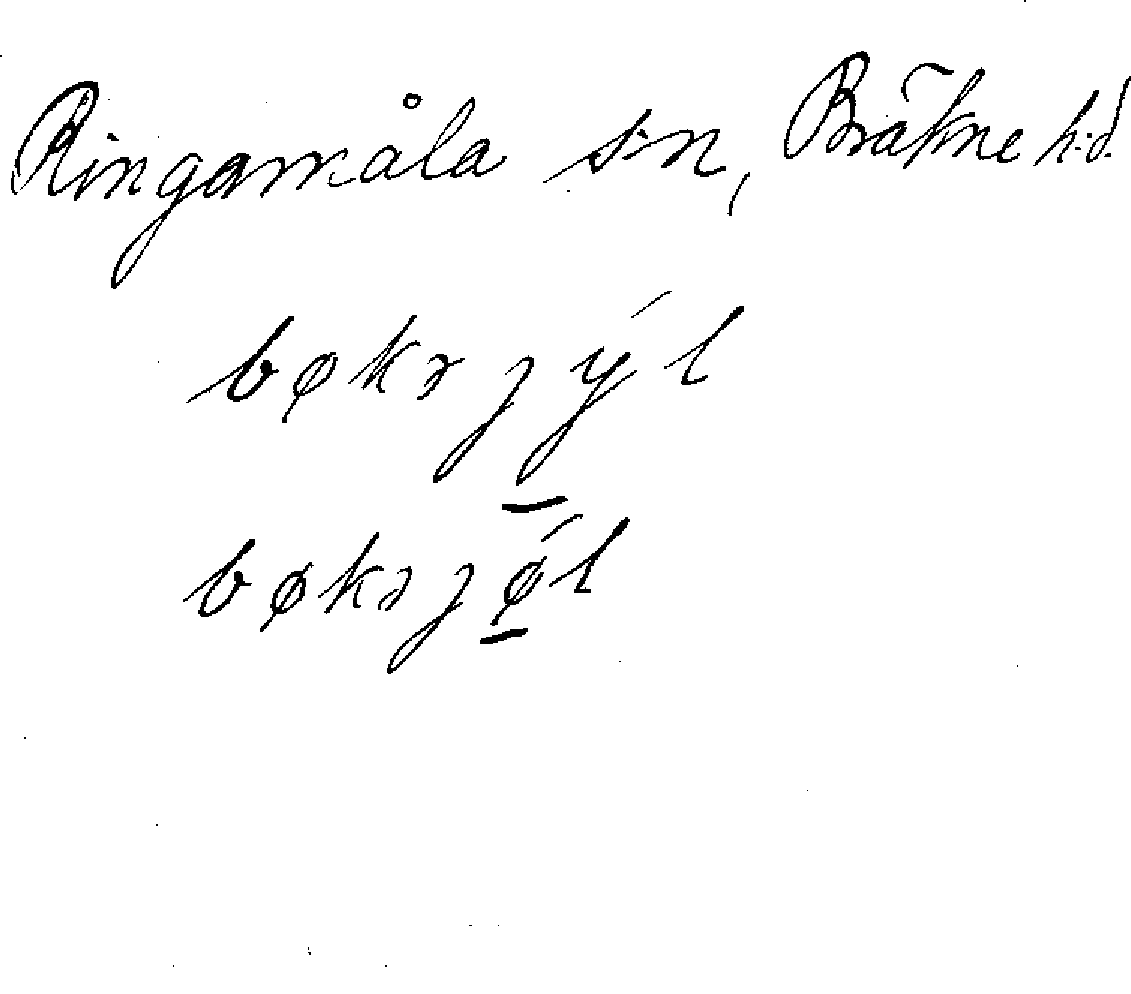 Ringamåla s:n, Bräkne h:d.
bøkəȷýl
bøkəȷǿl